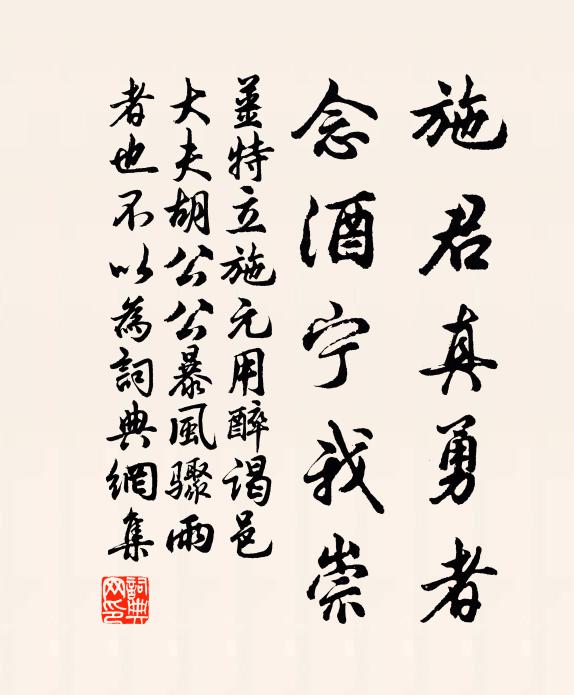 施君真勇者
念酒宁我崇
姜特立施元用醉谒邑
大夫胡公公暴風驟雨
者也不以為詞典網集
詞典
网印